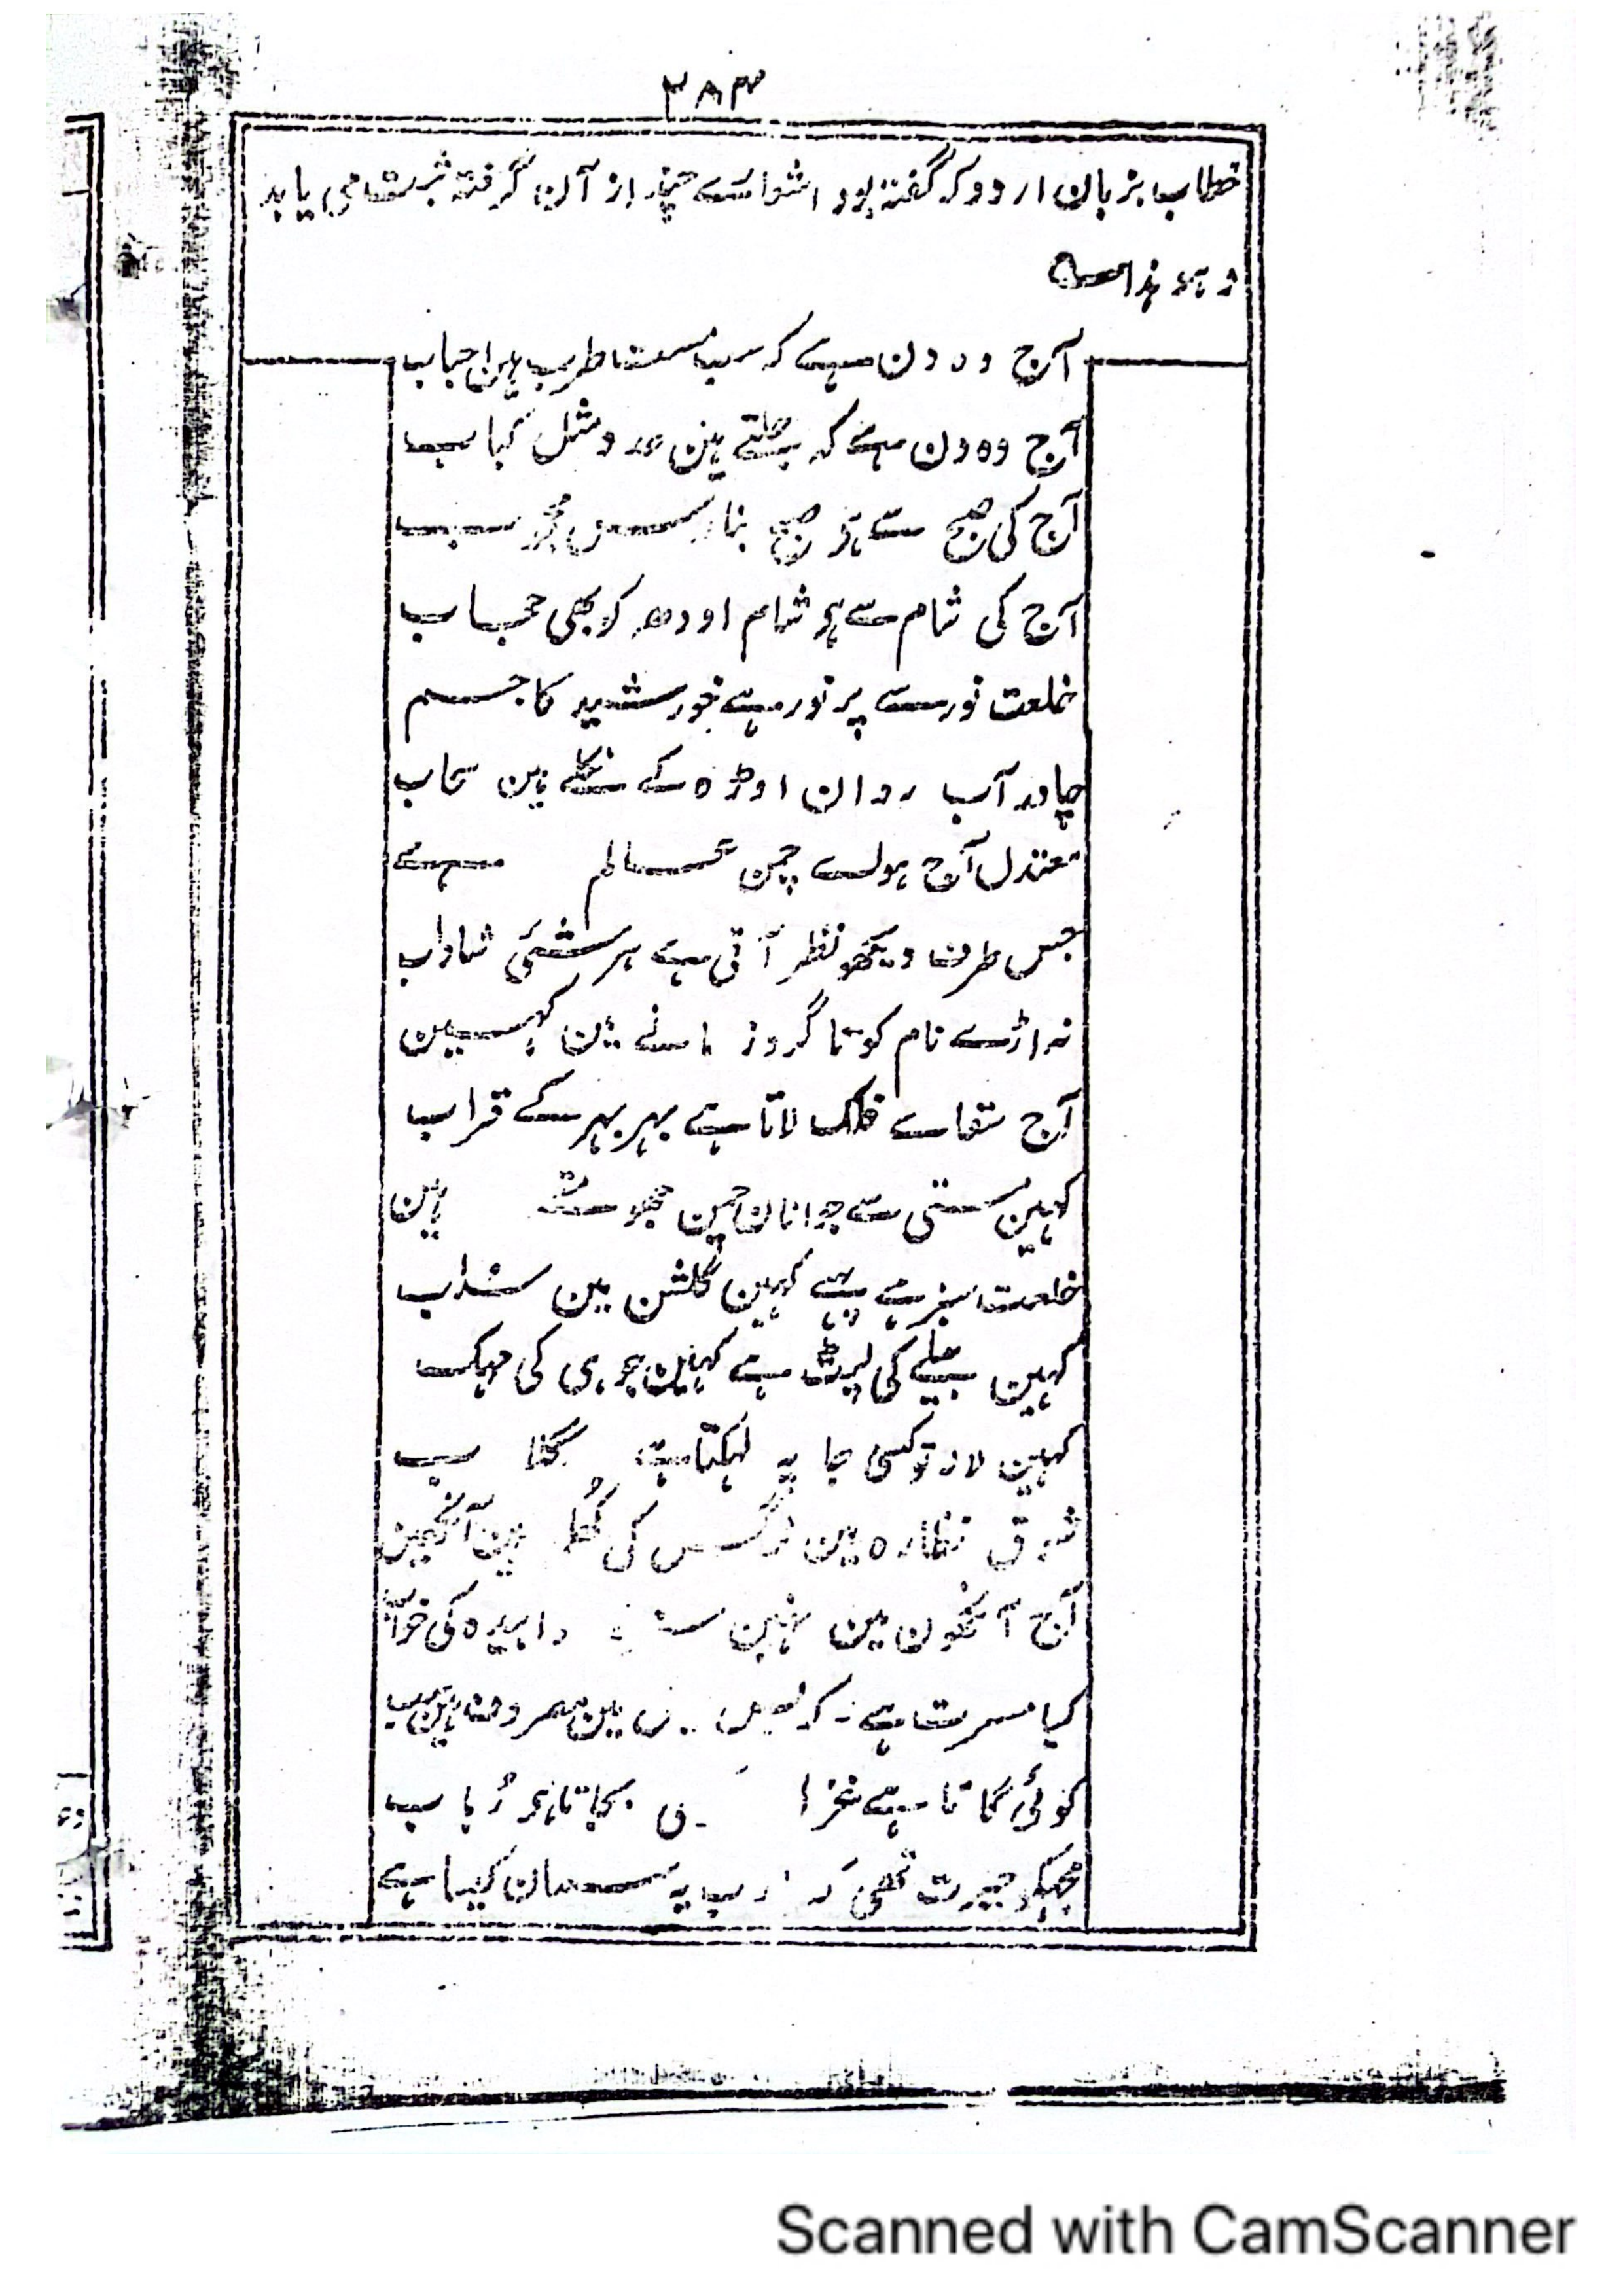 ۳۸۳
خطاب بزبان اردو کہ گفتہ بود اشعارے چند از آن گرفتہ ثبت می یابد
و ہو ہذا
آج وہ دن ہے کہ سب مست طرب ہین احباب
آج وہ دن ہے کہ جلتے ہین عدو مثل کباب
آج کی صبح سے ہو صبح بنارس محجوب
آج کی شام سے ہو شام اودھ کو بھی حجاب
خلعت نور سے پر نور ہے خورشید کا جسم
چادر آب روان اوڑہ کے نکلے ہین سحاب
معتدل آج ہواے چمن عالم ہے
جس طرف دیکھو نظر آتی ہے ہر شئی شاداب
نہ اڑے نام کو تا گرد زمانے مین کہین
آج سقاے فلک لاتا ہے بہر بہر کے قراب
کہین مستی سے جوانان چمن جھومتے ہین
خلعت سبز ہے پہنے کہین گلشن مین سداب
کہین بیلے کی لپٹ ہے کہین جوہی کی مہک
کہین لالہ تو کسی جا پہ لہکتا ہے گلاب
شوق نظارہ مین نرگس کی کُھلی ہین آنکھین
آج آنکھون مین نہین سبزہ خوابیدہ کی خواب
کیا مسرت ہے کہ مین مصروف ہین سب
کوئی گاتا ہے بجاتا ہو رُباب
مجہکو حیرت تھی کہ یارب یہ سامان کیسا ہے
Scanned with CamScanner